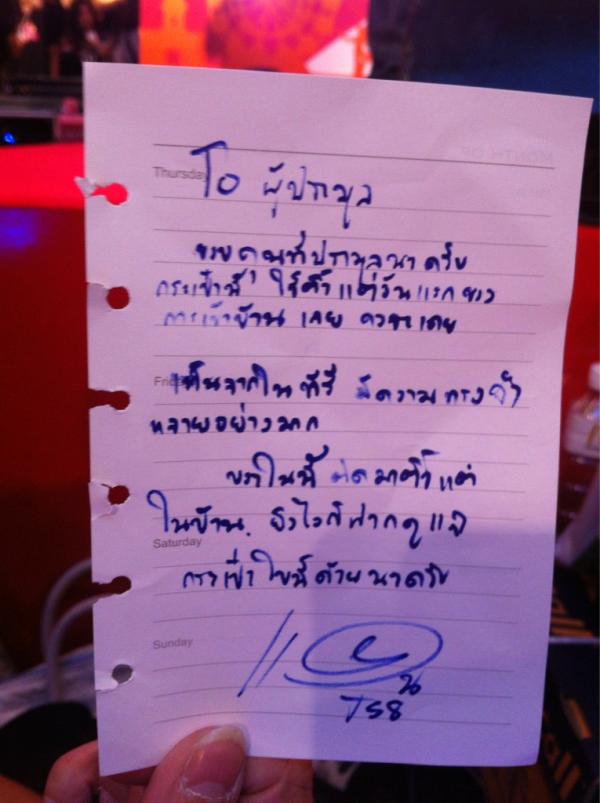 MONTH OF
Thursday
To ผู้ประมูล
ขอบคุณที่ประมูลนาครับ
กระเป๋านี้ ใช้ตั้งแต่วันแรกของ
การเข้าบ้าน เลย
Friday
เห็นจากในทีวี มีความทรงจำ
หลายอย่างมาก
ในนี้ ติดมาตั้งแต่
ในบ้าน. ยังไงก็ฝากดูแล
Saturday
กระเป๋าใบนี้ด้วยนาครับ
Sunday
TS8